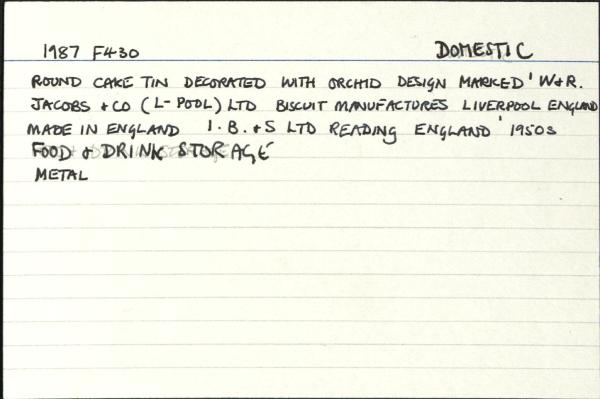 1987 F430 DOMESTIC
ROUND CAKE TIN DECORATED WITH ORCHID DESIGN MARKED 'W+R.
JACOBS + CO (L-POOL) LTD BISCUIT MANUFACTURES LIVERPOOL ENGLAND
MADE IN ENGLAND I.B.+S LTD READING ENGLAND' 1950s
FOOD & DRINK STORAGE
METAL